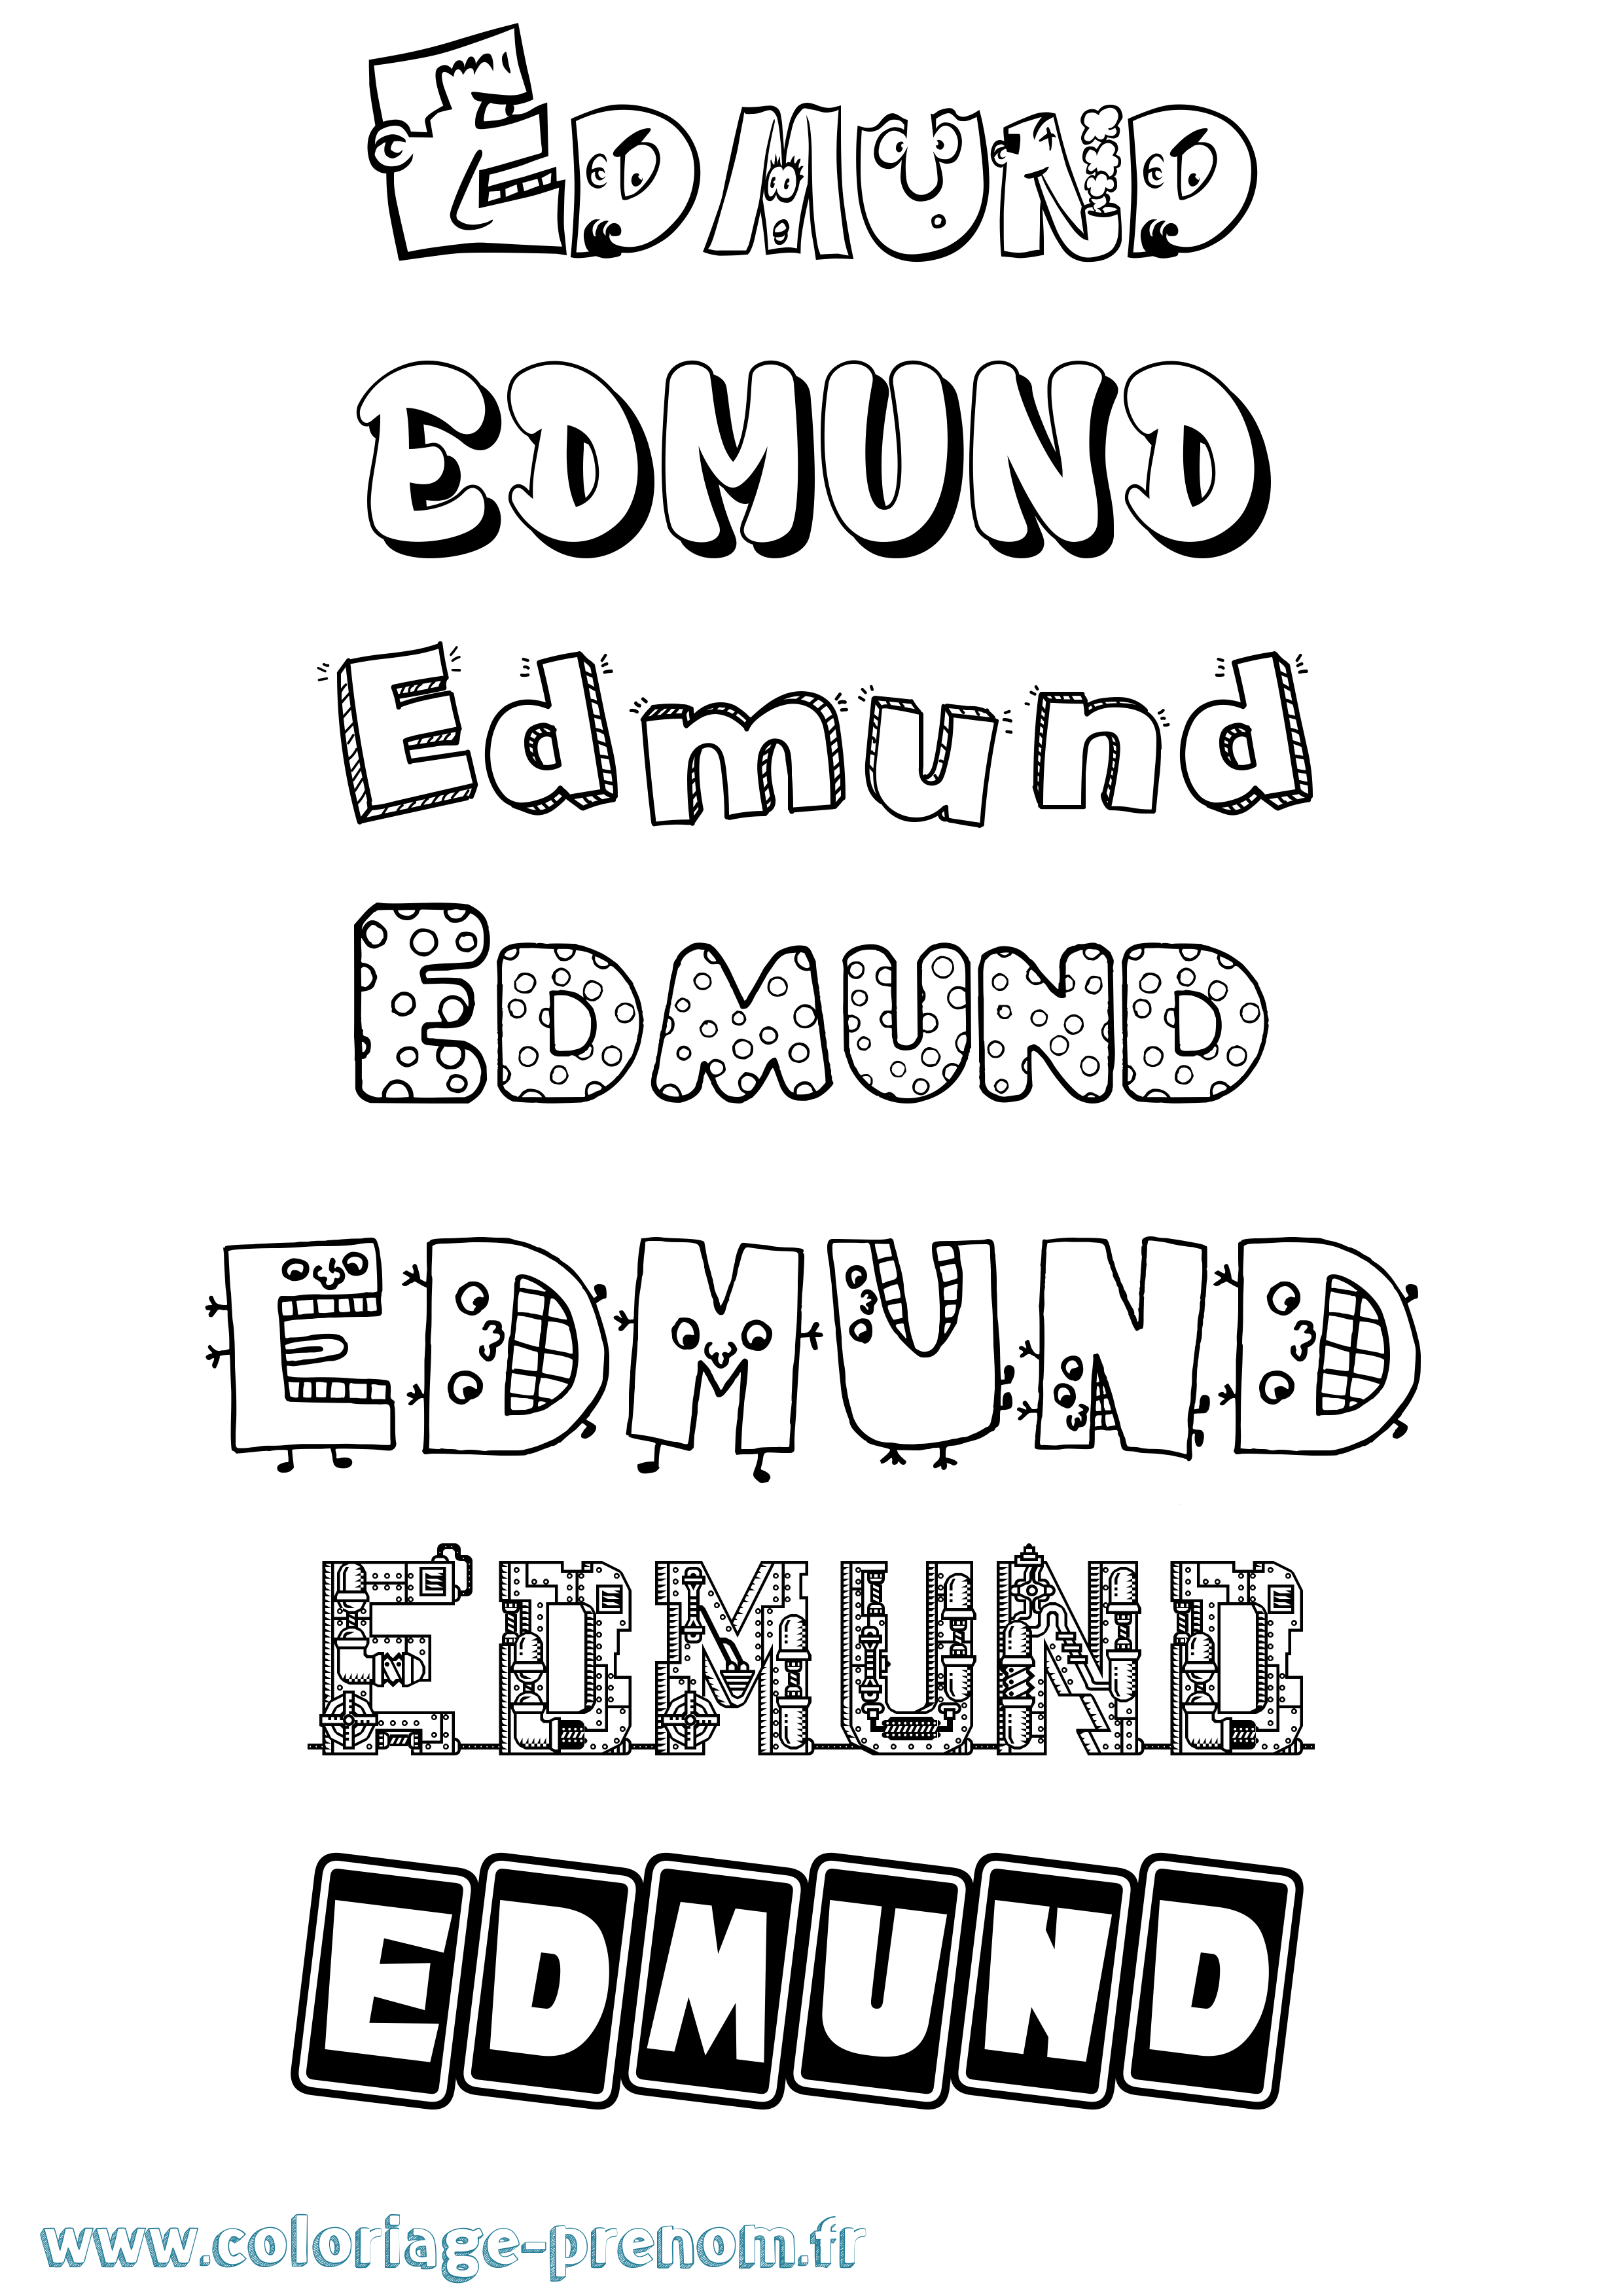 EDMUND
EDMUND
Edmund
EDMUND
EDMUND
EDMUND
EDMUND
www.coloriage-prenom.fr